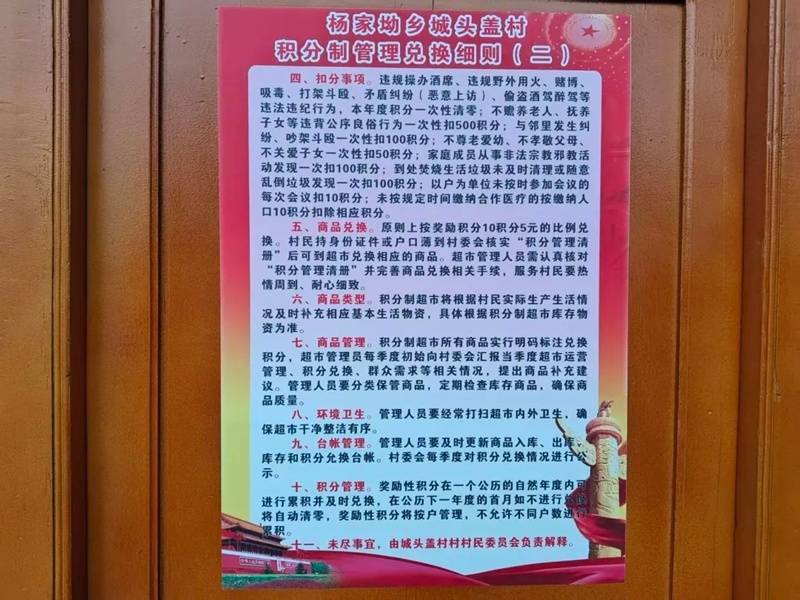 杨家坳乡城头盖村
积分制管理兑换细则（二）
四、扣分事项。违规操办酒席、违规野外用火、赌博、
吸毒、打架斗殴、矛盾纠纷（恶意上访）、偷盗酒驾醉驾等
违法违纪行为，本年度积分一次性清零；不赡养老人、抚养
子女等违背公序良俗行为一次性扣500积分；与邻里发生纠
纷、吵架斗殴一次性扣100积分；不尊老爱幼、不孝敬父母、
不关爱子女一次性扣50积分；家庭成员从事非法宗教邪教活
动发现一次扣100积分；到处焚烧生活垃圾未及时清理或随意
乱倒垃圾发现一次扣100积分；以户为单位未按时参加会议的
每次会议扣10积分；未按规定时间缴纳合作医疗的按缴纳人
口10积分扣除相应积分。
五、商品兑换。原则上按奖励积分10积分5元的比例兑
换。村民持身份证件或户口薄到村委会核实“积分管理清
册”后可到超市兑换相应的商品。超市管理人员需认真核对
“积分管理清册”并完善商品兑换相关手续，服务村民要热
情周到、耐心细致。
六、商品类型。积分制超市将根据村民实际生产生活情
况及时补充相应基本生活物资，具体根据积分制超市库存物
资为准。
七、商品管理。积分制超市所有商品实行明码标注兑换
积分，超市管理员每季度初始向村委会汇报当季度超市运营
管理、积分兑换、群众需求等相关情况，提出商品补充建
议。管理人员要分类保管商品，定期检查库存商品，确保商
品质量。
八、环境卫生。管理人员要经常打扫超市内外卫生，确
保超市干净整洁有序。
九、台帐管理。管理人员要及时更新商品入库、出库、
库存和积分允换台帐。村委会每季度对积分兑换情况进行公
示。
十、积分管理。奖励性积分在一个公历的自然年度内可
进行累积并及时兑换，在公历下一年度的首月如不进行兑换
将自动清零，奖励性积分将按户管理，不允许不同户数进行
累积。
十一、未尽事宜，由城头盖村村村民委员会负责解释。